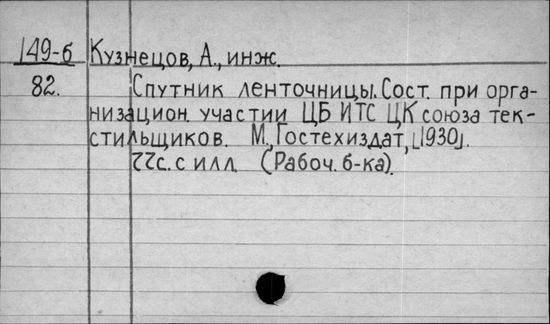 149-б Кузнецов, А., инж.
82. Спутник ленточницы. Сост. при орга-
низацион. участии ЦБ ИТС ЦК союза тек-
стильщиков. М., Гостехиздат, [1930].
22с. с илл. (Рабоч. б-ка).